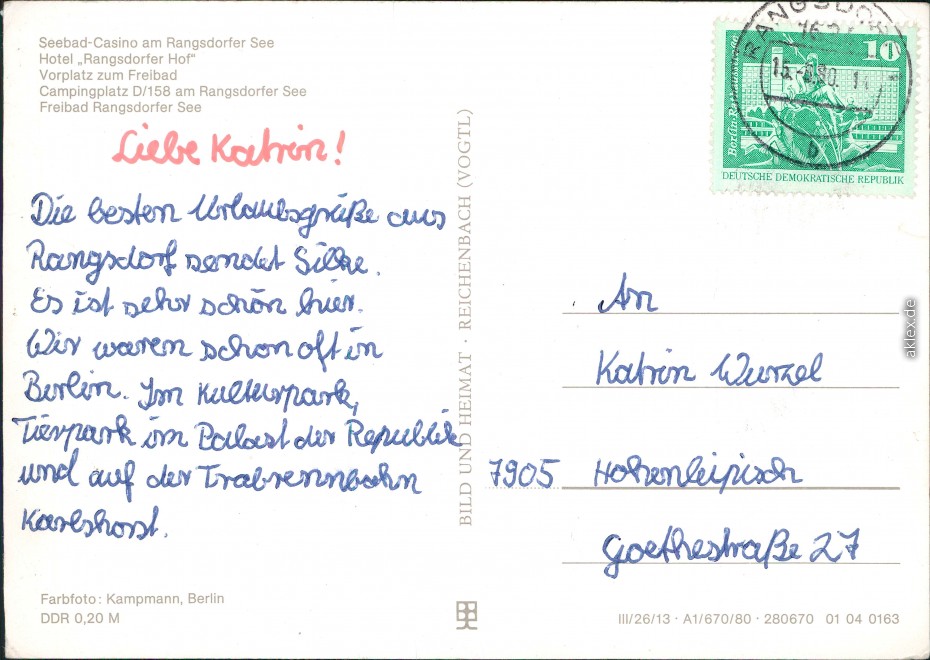 Seebad-Casino am Rangsdorfer See
Hotel „Rangsdorfer Hof“
Vorplatz zum Freibad
Campingplatz D/158 am Rangsdorfer See
Freibad Rangsdorfer See
Liebe Katrin!
Die besten Urlaubsgrüße aus
Rangsdorf sendet Silke.
Es ist sehr schön hier.
Wir waren schon oft in
Berlin. Im Kulturpark,
Tierpark im Palast der Republik
und auf der Trabrennbahn
Karlshorst.
Farbfoto: Kampmann, Berlin
DDR 0,20 M
BILD UND HEIMAT · REICHENBACH (VOGTL)
RANGSDORF
10
DEUTSCHE DEMOKRATISCHE REPUBLIK
b
An
Katrin Wurzel
7905 Hohenleipisch
Goethestraße 27
III/26/13 · A1/670/80 · 280670 01 04 0163
aklex.de